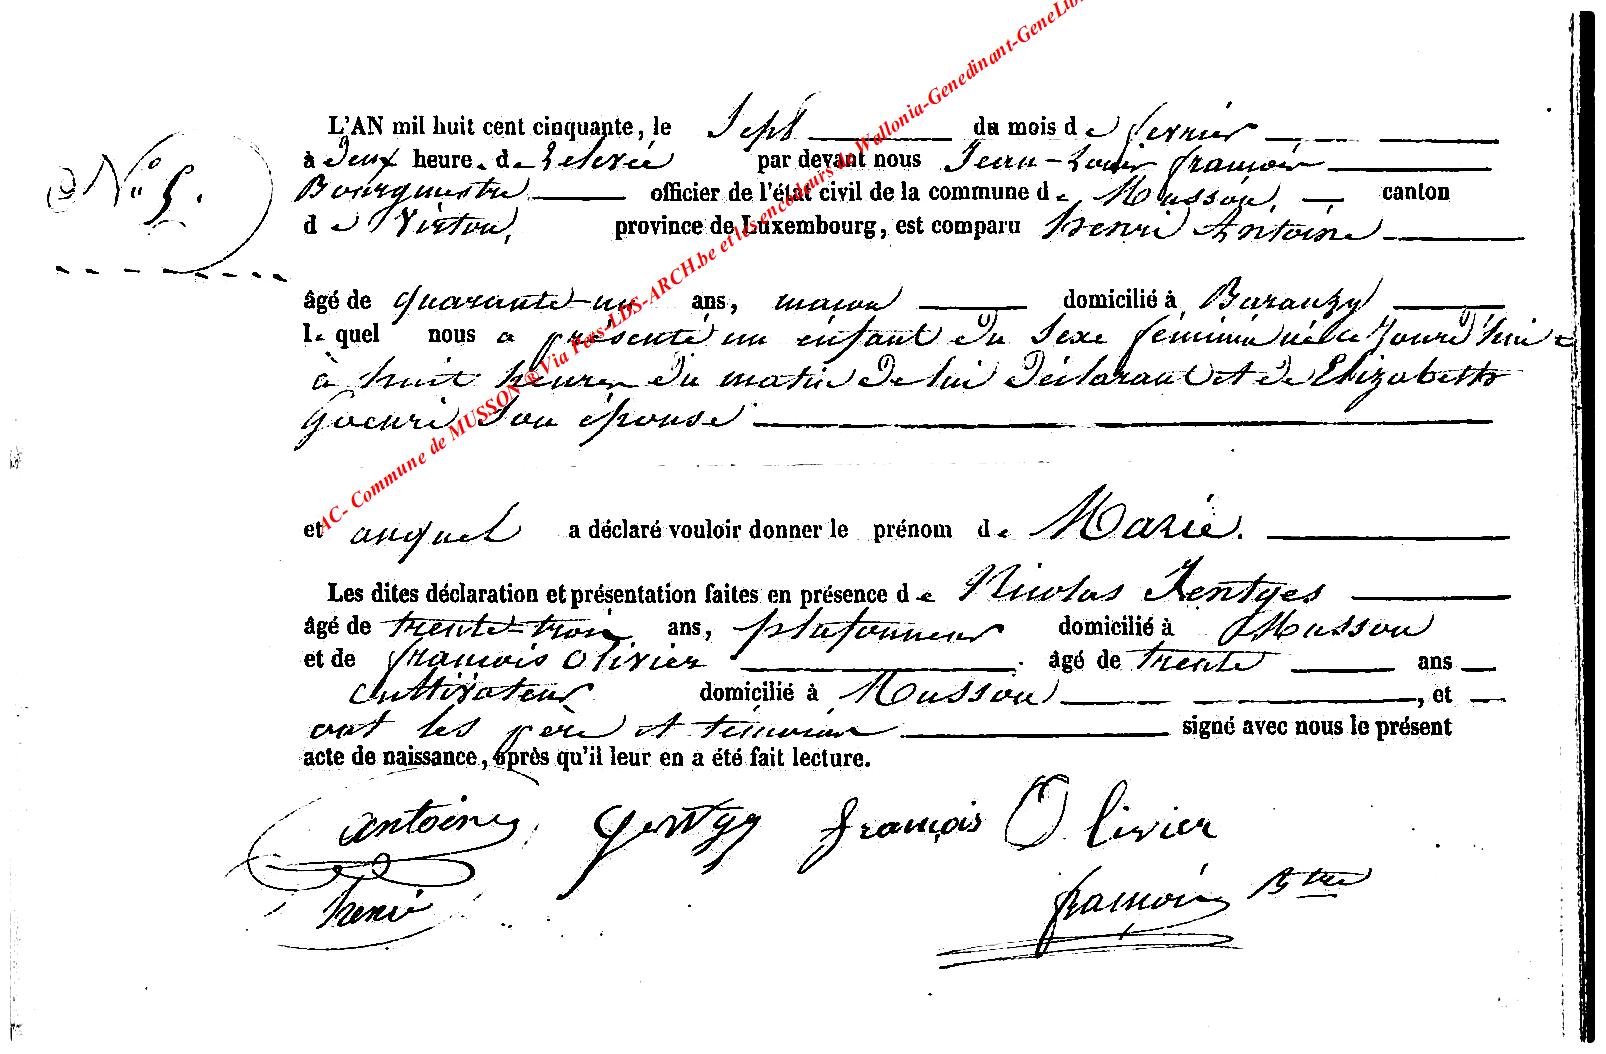 AC- Commune de MUSSON ® Via Pers-LDS-ARCH.be et les encodeurs de Wallonia-Genedinant-GeneLib
N° 5.
L'AN mil huit cent cinquante, le Sept du mois de février
à Deux heure. de relevée par devant nous Jean-Louis françois
Bourgmestre officier de l'état civil de la commune de Musson, canton
de Virton, province de Luxembourg, est comparu henri Antoine
âgé de quarante-un ans, macon domicilié à Baranzy
le quel nous a présenté un enfant du Sexe féminin né ce jourd'hui
à huit heures du matin de lui Déclarant et de Elizabeth
son épouse
et auquel a déclaré vouloir donner le prénom de Marie.
Les dites déclaration et présentation faites en présence de Nicolas
âgé de trente-trois ans, plafonneur domicilié à Musson
et de françois Olivier âgé de trente ans
cultivateur domicilié à Musson, et
ont les père et témoins signé avec nous le présent
acte de naissance, après qu'il leur en a été fait lecture.
antoine françois Olivier
henri françois Btre